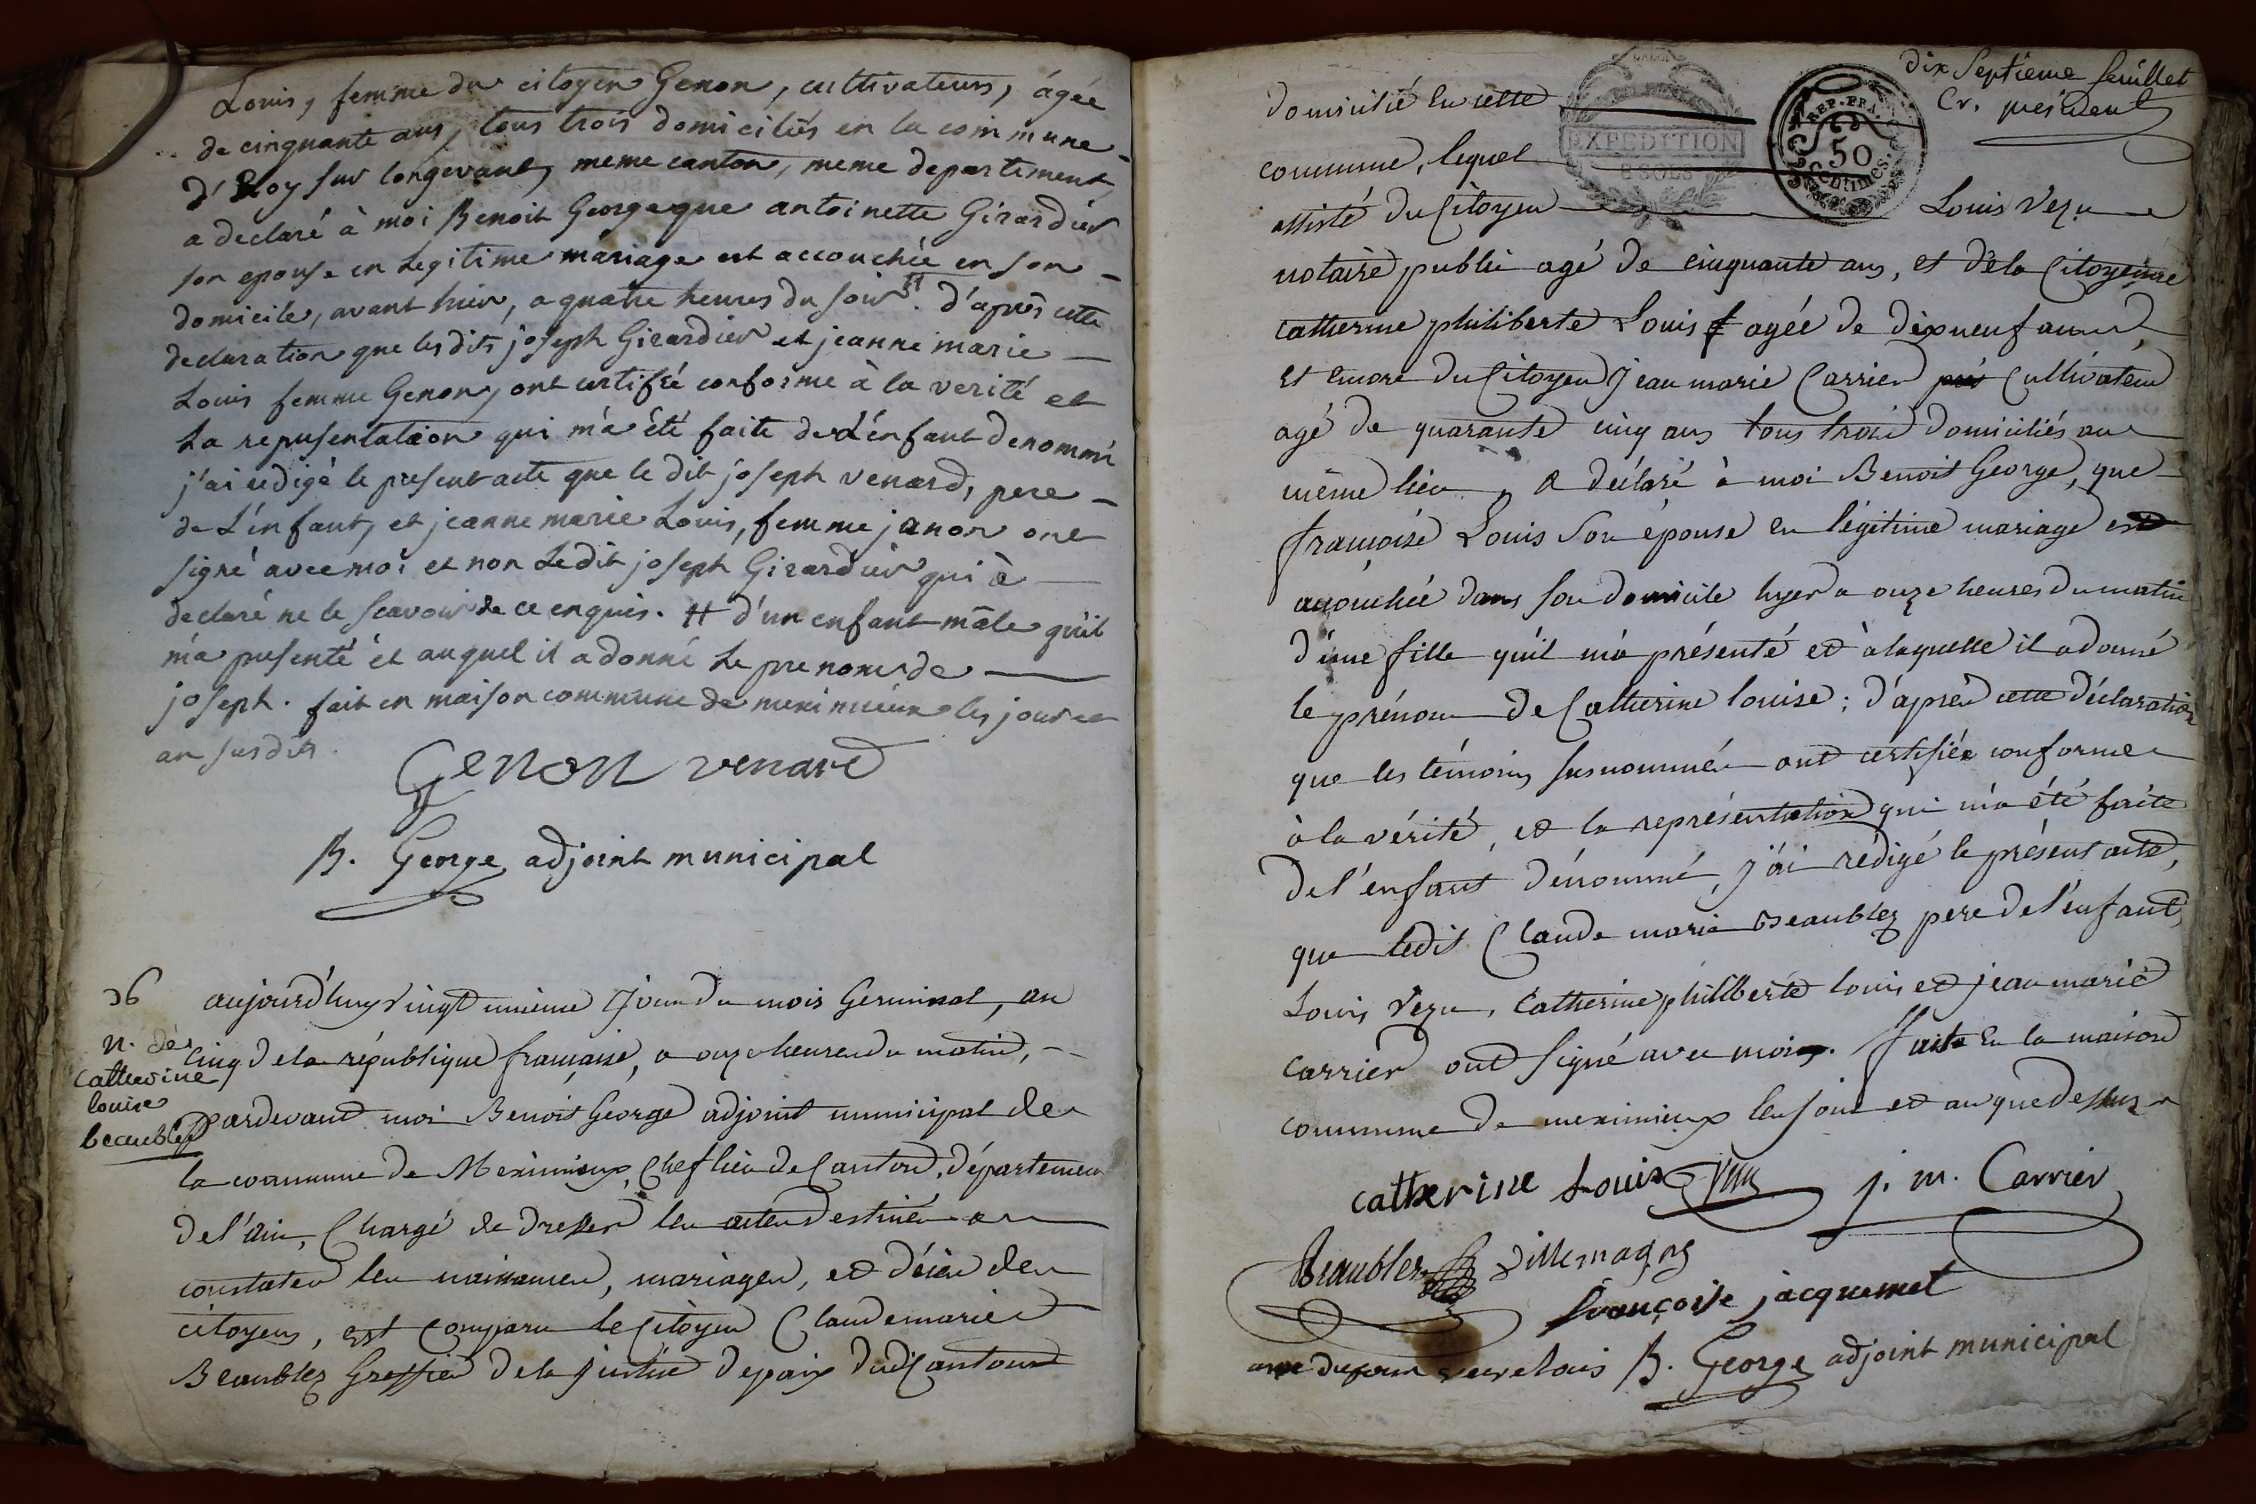 Louis, femme du citoyen Genon, cultivateurs, agée
de cinquante ans, tous trois domiciliés en la commune
d'Eloy sur longevant, meme canton, meme departiment
a declaré à moi Benoit George que antoinette Girardier
son epouse en Legitime mariage est accouchée en son
domicile, avant hier, a quatre heures du soir # . d'après cette
declaration que les dits joseph Girardier et jeanne marie
Louis femme Genon, ont certifié conforme à la verité et
La representation qui m'a été faite de L'enfant denommé
j'ai redigé le present acte que le dit joseph venard, pere
de L'enfant, et jeanne marie Louis, femme janon ont
signé avec moi et non Ledit joseph Girardier qui à
declaré ne le scavoir de ce enquis. # d'un enfant mâle qu'il
m'a presenté et auquel il a donné Le prenom de
joseph. fait en maison commune de meximieux les jour et
an susdits.
Genon venard
B. George adjoint municipal
36
n. de
Catherine
louise
beaublez
aujourd'huy vingt unieme Jour du mois Germinal, an
Cinq de la république française, a onze heures du matin,
pardevant moi Benoit George adjoint municipal de
la commune de Meximieux, Chef lieu de Canton, département
de l'ain, Chargé de dresser les actes destinés a
constater les naissances, mariages, et décès des
citoyens, est comparu le Citoyen Claude marie
Beaublez Greffier de la justice de paix dud. Canton
dix Septieme feuillet
Cr. president
EXPEDITION
8 SOLS
REP. FRA.
50
Centimes.
domicilié en cette
commune, lequel
assisté du Citoyen Louis Vezu
notaire public agé de cinquante ans, et de la Citoyenne
catherine philiberte Louis agée de dix neuf ans
et encore du Citoyen Jean marie Carrier Cultivateur
agé de quarante cinq ans tous trois domiciliés au
même lieu, a déclaré à moi Benoit George, que
françoise Louis son épouse en légitime mariage est
acouchée dans son domicile hyer a onze heures du matin
d'une fille qu'il m'a présenté et à laquelle il a donné
le prénom de Catherine louise ; d'après cette déclaration
que les témoins susnommés ont certifiée conforme
à la vérité, et la représentation qui m'a été faite
de l'enfant dénommé, j'ai rédigé le présent acte,
que ledit Claude marie Beaublez pere de l'enfant,
Louis Vezu, Catherine philiberte louis et jean marie
Carrier ont signé avec moi. fait En la maison
commune de meximieux les jour et an que dessus
catherine Louis Vezu j. m. Carrier
Beaublez Dillemagne
françoise jacquemet
B. George adjoint municipal